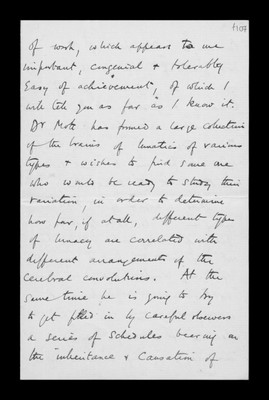 1107
of work, which appears to me
important, congenial & tolerably
Easy of achievement, of which I
will tell you as far as I know it.
Dr Mott has formed a large collection
of the brains of lunatics of various
types & wishes to find some one
who would be ready to study their
variation, in order to determine
how far, if at all, different types
of lunacy are correlated with
different arrangements of the
Cerebral convolutions. At the
same time he is going to try
to get filled in by careful observers
a series of Schedules bearing on
the inheritance & Causation of